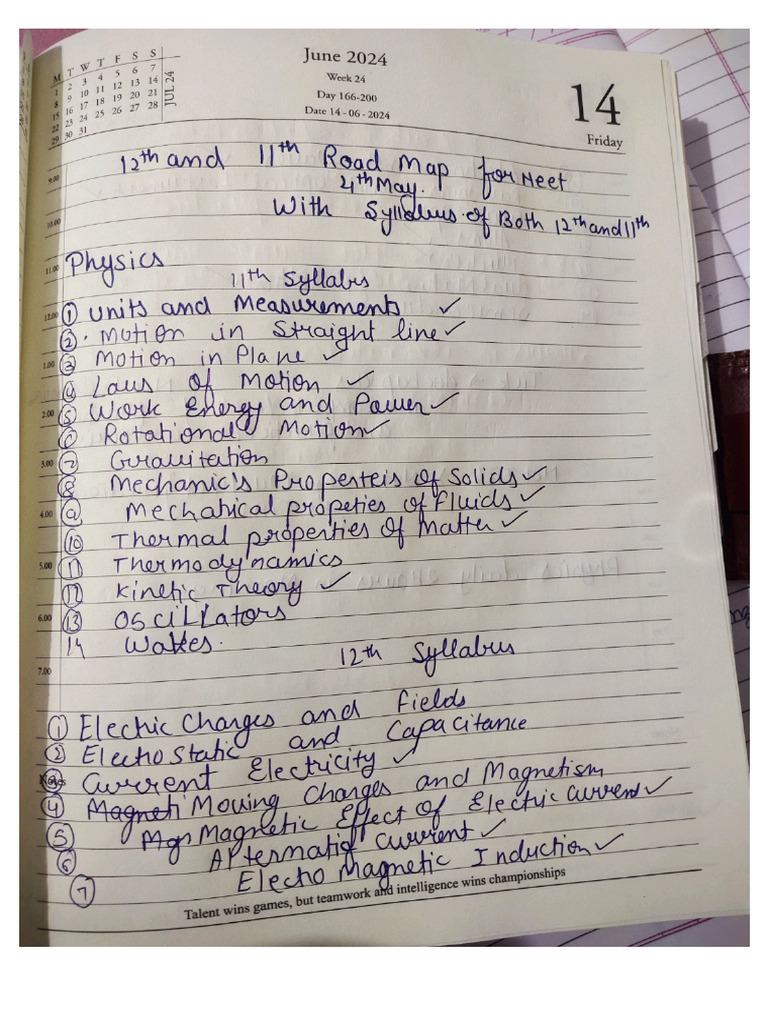 June 2024
Week 24
Day 166-200
Date 14 - 06 - 2024
14
Friday
M T W T F S S
1 2 3 4 5 6 7
8 9 10 11 12 13 14
15 16 17 18 19 20 21
22 23 24 25 26 27 28
29 30 31
JUL 24
12th and 11th Road Map for Neet
4th May.
With Syllabus of Both 12th and 11th
Physics
11th Syllabus
① Units and Measurements ✓
②. Motion in Straight line ✓
③ Motion in Plane ✓
④ Laws of Motion ✓
⑤ Work Energy and Power ✓
⑥ Rotational Motion ✓
⑦ Gravitation
⑧ Mechanic's Propesteis of Solids ✓
⑨ Mechatical propeties of fluids ✓
⑩ Thermal properties of Matter ✓
⑪ Thermodynamics
⑫ Kinetic Theory ✓
⑬ Oscillators
14 Waves.
12th Syllabus
① Electric Charges and fields
② Electro Static and Capacitance
③ Current Electricity ✓
④ Magneti Moving Charges and Magnetism
⑤ Mgn Magnetic Effect Of Electric Current ✓
⑥ Alternatig Current ✓
⑦ Electro Magnetic Induction ✓
Talent wins games, but teamwork and intelligence wins championships
9.00
10.00
11.00
12.00
1.00
2.00
3.00
4.00
5.00
6.00
7.00
Notes